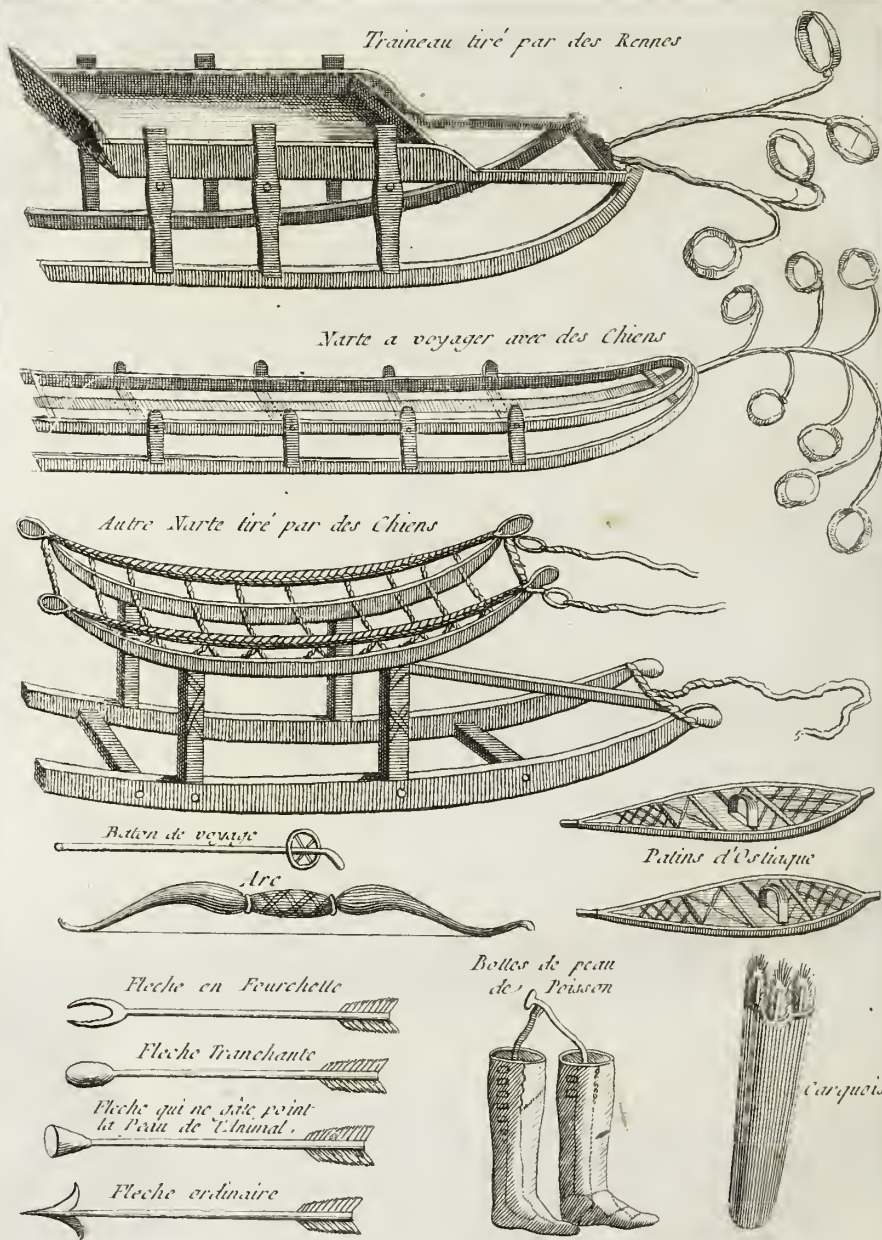 Traineau tiré par des Rennes
Narte a voyager avec des Chiens
Autre Narte tiré par des Chiens
Baton de voyage
Arc
Patins d'Ostiaque
Bottes de peau
de Poisson
Fleche en Fourchette
Fleche Tranchante
Fleche qui ne gâte point
la Peau de l'Animal.
Fleche ordinaire
Carquois